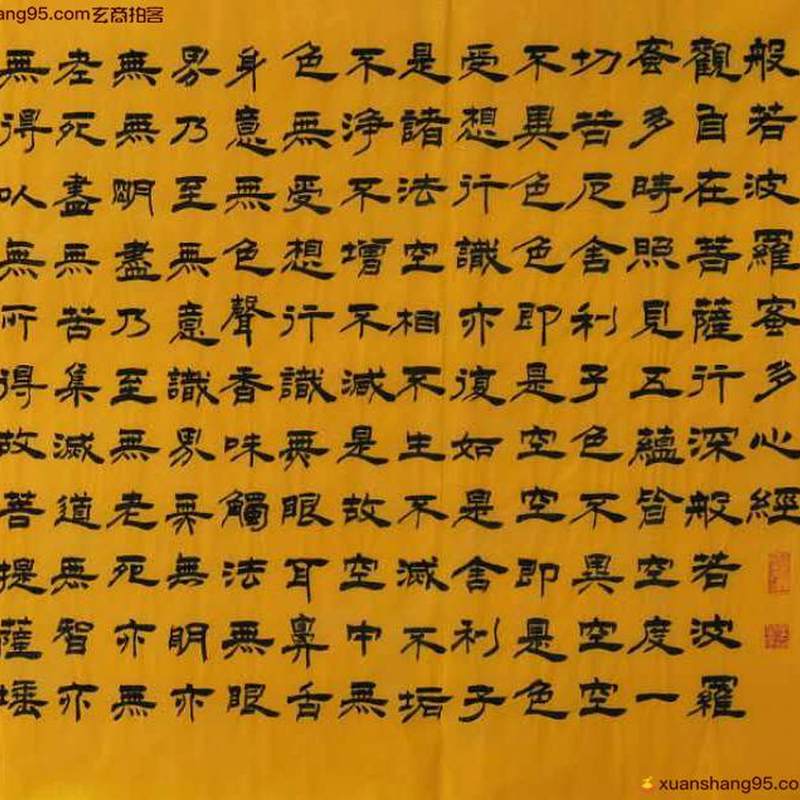 ang95.com玄商拍客
般若波羅蜜多心經
觀自在菩薩行深般若波羅
蜜多時照見五蘊皆空度一
切苦厄舍利子色不異空空
不異色色即是空空即是色
受想行識亦復如是舍利子
是諸法空相不生不滅不垢
不淨不增不減是故空中無
色無受想行識無眼耳鼻舌
身意無色聲香味觸法無眼
界乃至無意識界無無明亦
無無明盡乃至無老死亦無
老死盡無苦集滅道無智亦
無得以無所得故菩提薩埵
xuanshang95.co